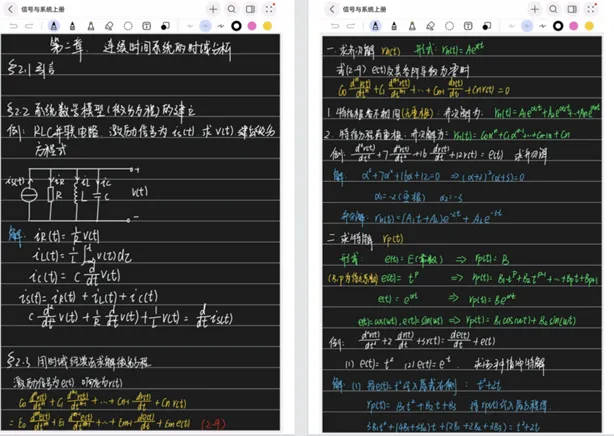 信号与系统上册
第二章. 连续时间系统的时域分析
§2.1 引言
§2.2 系统数学模型(微分方程)的建立
例: RLC并联电路, 激励信号为 is(t) 求 v(t) 建立微分
方程式
is(t) iR iL iC
R L C v(t)
+
-
解: iR(t) = 1/R v(t)
iL(t) = 1/L ∫ v(τ)dτ
iC(t) = C d/dt v(t)
is(t) = iR(t) + iL(t) + iC(t)
C d²/dt² v(t) + 1/R d/dt v(t) + 1/L v(t) = d/dt is(t)
§2.3 用时域经典法求解微分方程
激励信号为e(t) 响应为r(t)
C0 dⁿr(t)/dtⁿ + C1 dⁿ⁻¹r(t)/dtⁿ⁻¹ + ... + Cn-1 dr(t)/dt + Cn r(t)
= E0 dᵐe(t)/dtᵐ + E1 dᵐ⁻¹e(t)/dtᵐ⁻¹ + ... + Em-1 de(t)/dt + Em e(t) (2-9)
信号与系统上册
一. 求齐次解 rh(t) 形式: rh(t) = Ae^αt
式(2-9) e(t)及其各阶导数为零时
C0 dⁿr(t)/dtⁿ + C1 dⁿ⁻¹r(t)/dtⁿ⁻¹ + ... + Cn-1 dr(t)/dt + Cn r(t) = 0
1. 特征根各不相同(无重根): 齐次解为: rh(t) = A1e^α1t + A2e^α2t + ... + Ane^αnt
2. 特征方程有重根. 齐次解为:
例: d³r(t)/dt³ + 7 d²r(t)/dt² + 16 dr(t)/dt + 12r(t) = e(t) 求齐次解
解: α³ + 7α² + 16α + 12 = 0 ⇒ (α+2)²(α+3) = 0
α1 = -2 (重根) α2 = -3
齐次解: rh(t) = (A1t + A2)e^-2t + A3e^-3t
二. 求特解 rp(t)
形式 e(t) = E(常数) ⇒ rp(t) = B
e(t) = t^p ⇒ rp(t) = B1t^p + B2t^p-1 + ... + Bpt + Bp+1
e(t) = e^αt ⇒ rp(t) = Be^αt
e(t) = cos(ωt), e(t) = sin(ωt) ⇒ rp(t) = B1 cos(ωt) + B2 sin(ωt)
例: d²r(t)/dt² + 2 dr(t)/dt + 3r(t) = de(t)/dt + e(t)
(1) e(t) = t² (2) e(t) = e^t. 求两种情况特解
解: (1) 将e(t) = t²代入方程右侧: t² + 2t
rp(t) = B1t² + B2t + B3 将rp(t)代入方程得:
3B1t² + (4B1 + 3B2)t + (2B1 + 2B2 + 3B3) = t² + 2t